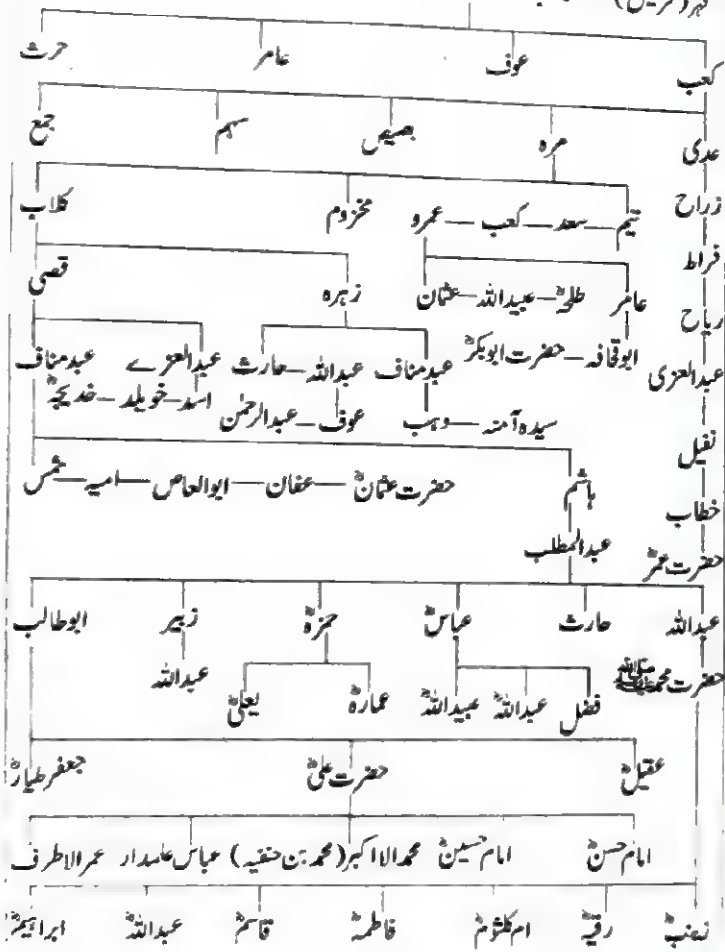 فہر (قریش)
کعب عوف عامر حرث
عدی مرہ ہصیص سہم جمع
زراح تیم — سعد — کعب — عمرہ مخزوم کلاب
فراط زہرہ قصی
ریاح عامر طلحہؓ — عبیداللہ — عثمان
عبدالعزی ابوقحافہ — حضرت ابوبکرؓ عبدمناف عبداللہ — حارث عبدالعزے عبدمناف
سیدہ آمنہ — وہب عوف — عبدالرحمٰن اسد — خویلد — خدیجہؓ
نفیل
خطاب ہاشم حضرت عثمانؓ — عفان — ابوالعاص — امیہ — شمس
حضرت عمرؓ عبدالمطلب
عبداللہ حارث عباسؓ حمزہؓ زبیر ابوطالب
حضرت محمدﷺ فضل عبداللہؓ عبیداللہؓ عمارہؓ یعلیؓ عبداللہ
عقیلؓ حضرت علیؓ جعفر طیارؓ
امام حسنؓ امام حسینؓ محمد الااکبر (محمد بن حنفیہ) عباس علمدار عمر الاطرف
زینبؓ رقیہؓ ام کلثومؓ فاطمہؓ قاسمؓ عبداللہؓ ابراہیمؓ